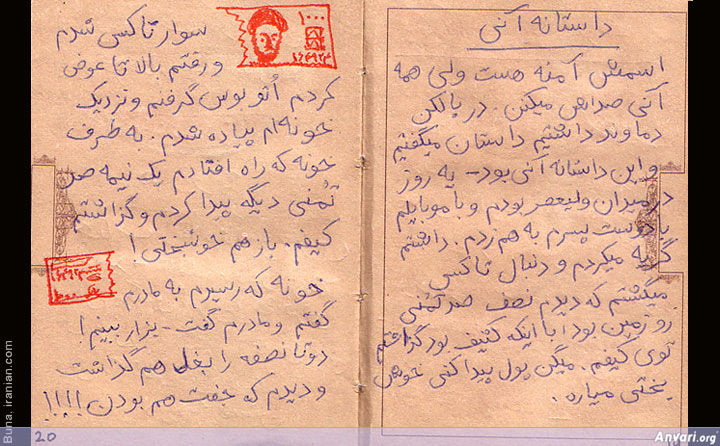 داستانه آنی
اسمش آمنه هست ولی همه
آنی صداش میکنن. در بالکن
دماوند داشتیم داستان میگفتیم
و این داستانه آنی بود - یه روز
در میدان ولیعصر بودم و با موبایلم
با دوست پسرم به هم زدم. داشتم
گریه میکردم و دنبال تاکسی
میگشتم که دیدم نصف صد تمنی
رو زمین بود! با اینکه کثیف بود گذاشتم
توی کیفم. میگن پول پیدا کنی خوش
بختی میاره.
سوار تاکسی شدم
و رفتم بالا تا عوض
کردم اُتوبوس گرفتم و نزدیک
خونه‌ام پیاده شدم. به طرف
خونه که راه افتادم یک نیمه صد
تُمنی دیگه پیدا کردم و گذاشتم
کیفم. باز هم خوشبختی!
خونه که رسیدم به مادرم
گفتم و مادرم گفت - بزار ببینم!
دو تا نصفه را بغل هم گذاشت
و دیدم که جفت هم بودن!!!!!
۱۰۰۰
20
Buna, iranian.com
Anvari.org